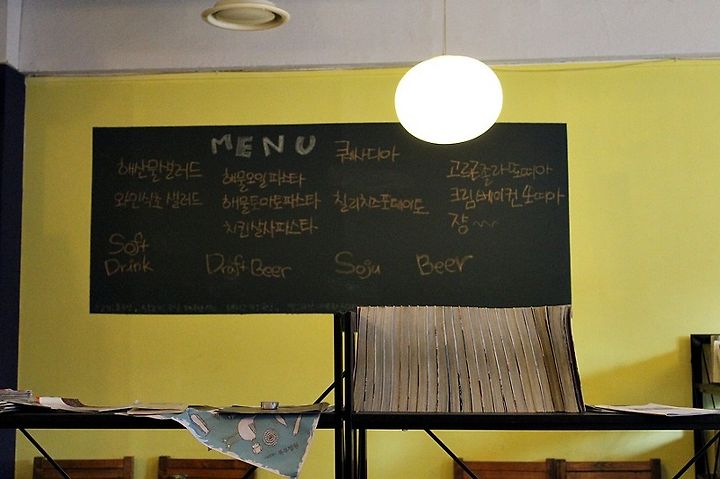 MENU
해산물샐러드
와인식초 샐러드
해물오일파스타
해물토마토파스타
치킨살사파스타
퀘사디아
칠리치즈포테이토
고르곤졸라또띠아
크림베이컨 또띠아
쟝~~
Soft
Drink
Draft Beer
Soju
Beer